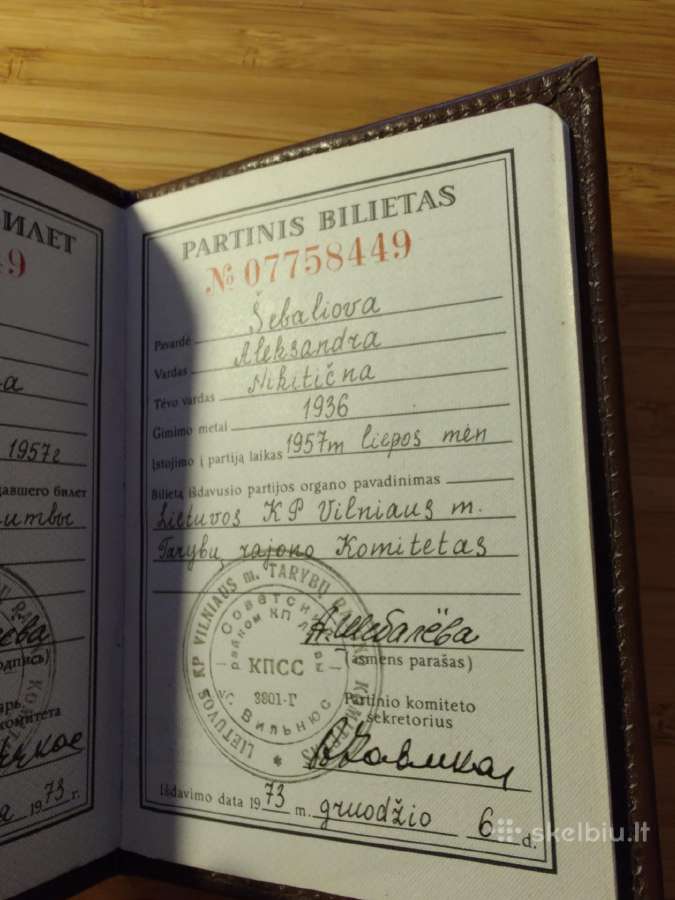 ИЛЕТ
9
а
1957г
давшего билет
итвы
ева
дпись)
арь
комитета
1973 г.
PARTINIS BILIETAS
№ 07758449
Pavardė Šebaliova
Vardas Aleksandra
Tėvo vardas Nikitična
Gimimo metai 1936
Įstojimo į partiją laikas 1957m liepos mėn
Bilietą išdavusio partijos organo pavadinimas
Lietuvos KP Vilniaus m.
Tarybų rajono Komitetas
LIETUVOS KP VILNIAUS m. TARYBŲ
райком КП
КПСС
3801-Г
г. Вильнюс
А.Шебалёва
(asmens parašas)
Partinio komiteto
sekretorius
Išdavimo data 1973 m. gruodžio 6 d.
skelbiu.lt